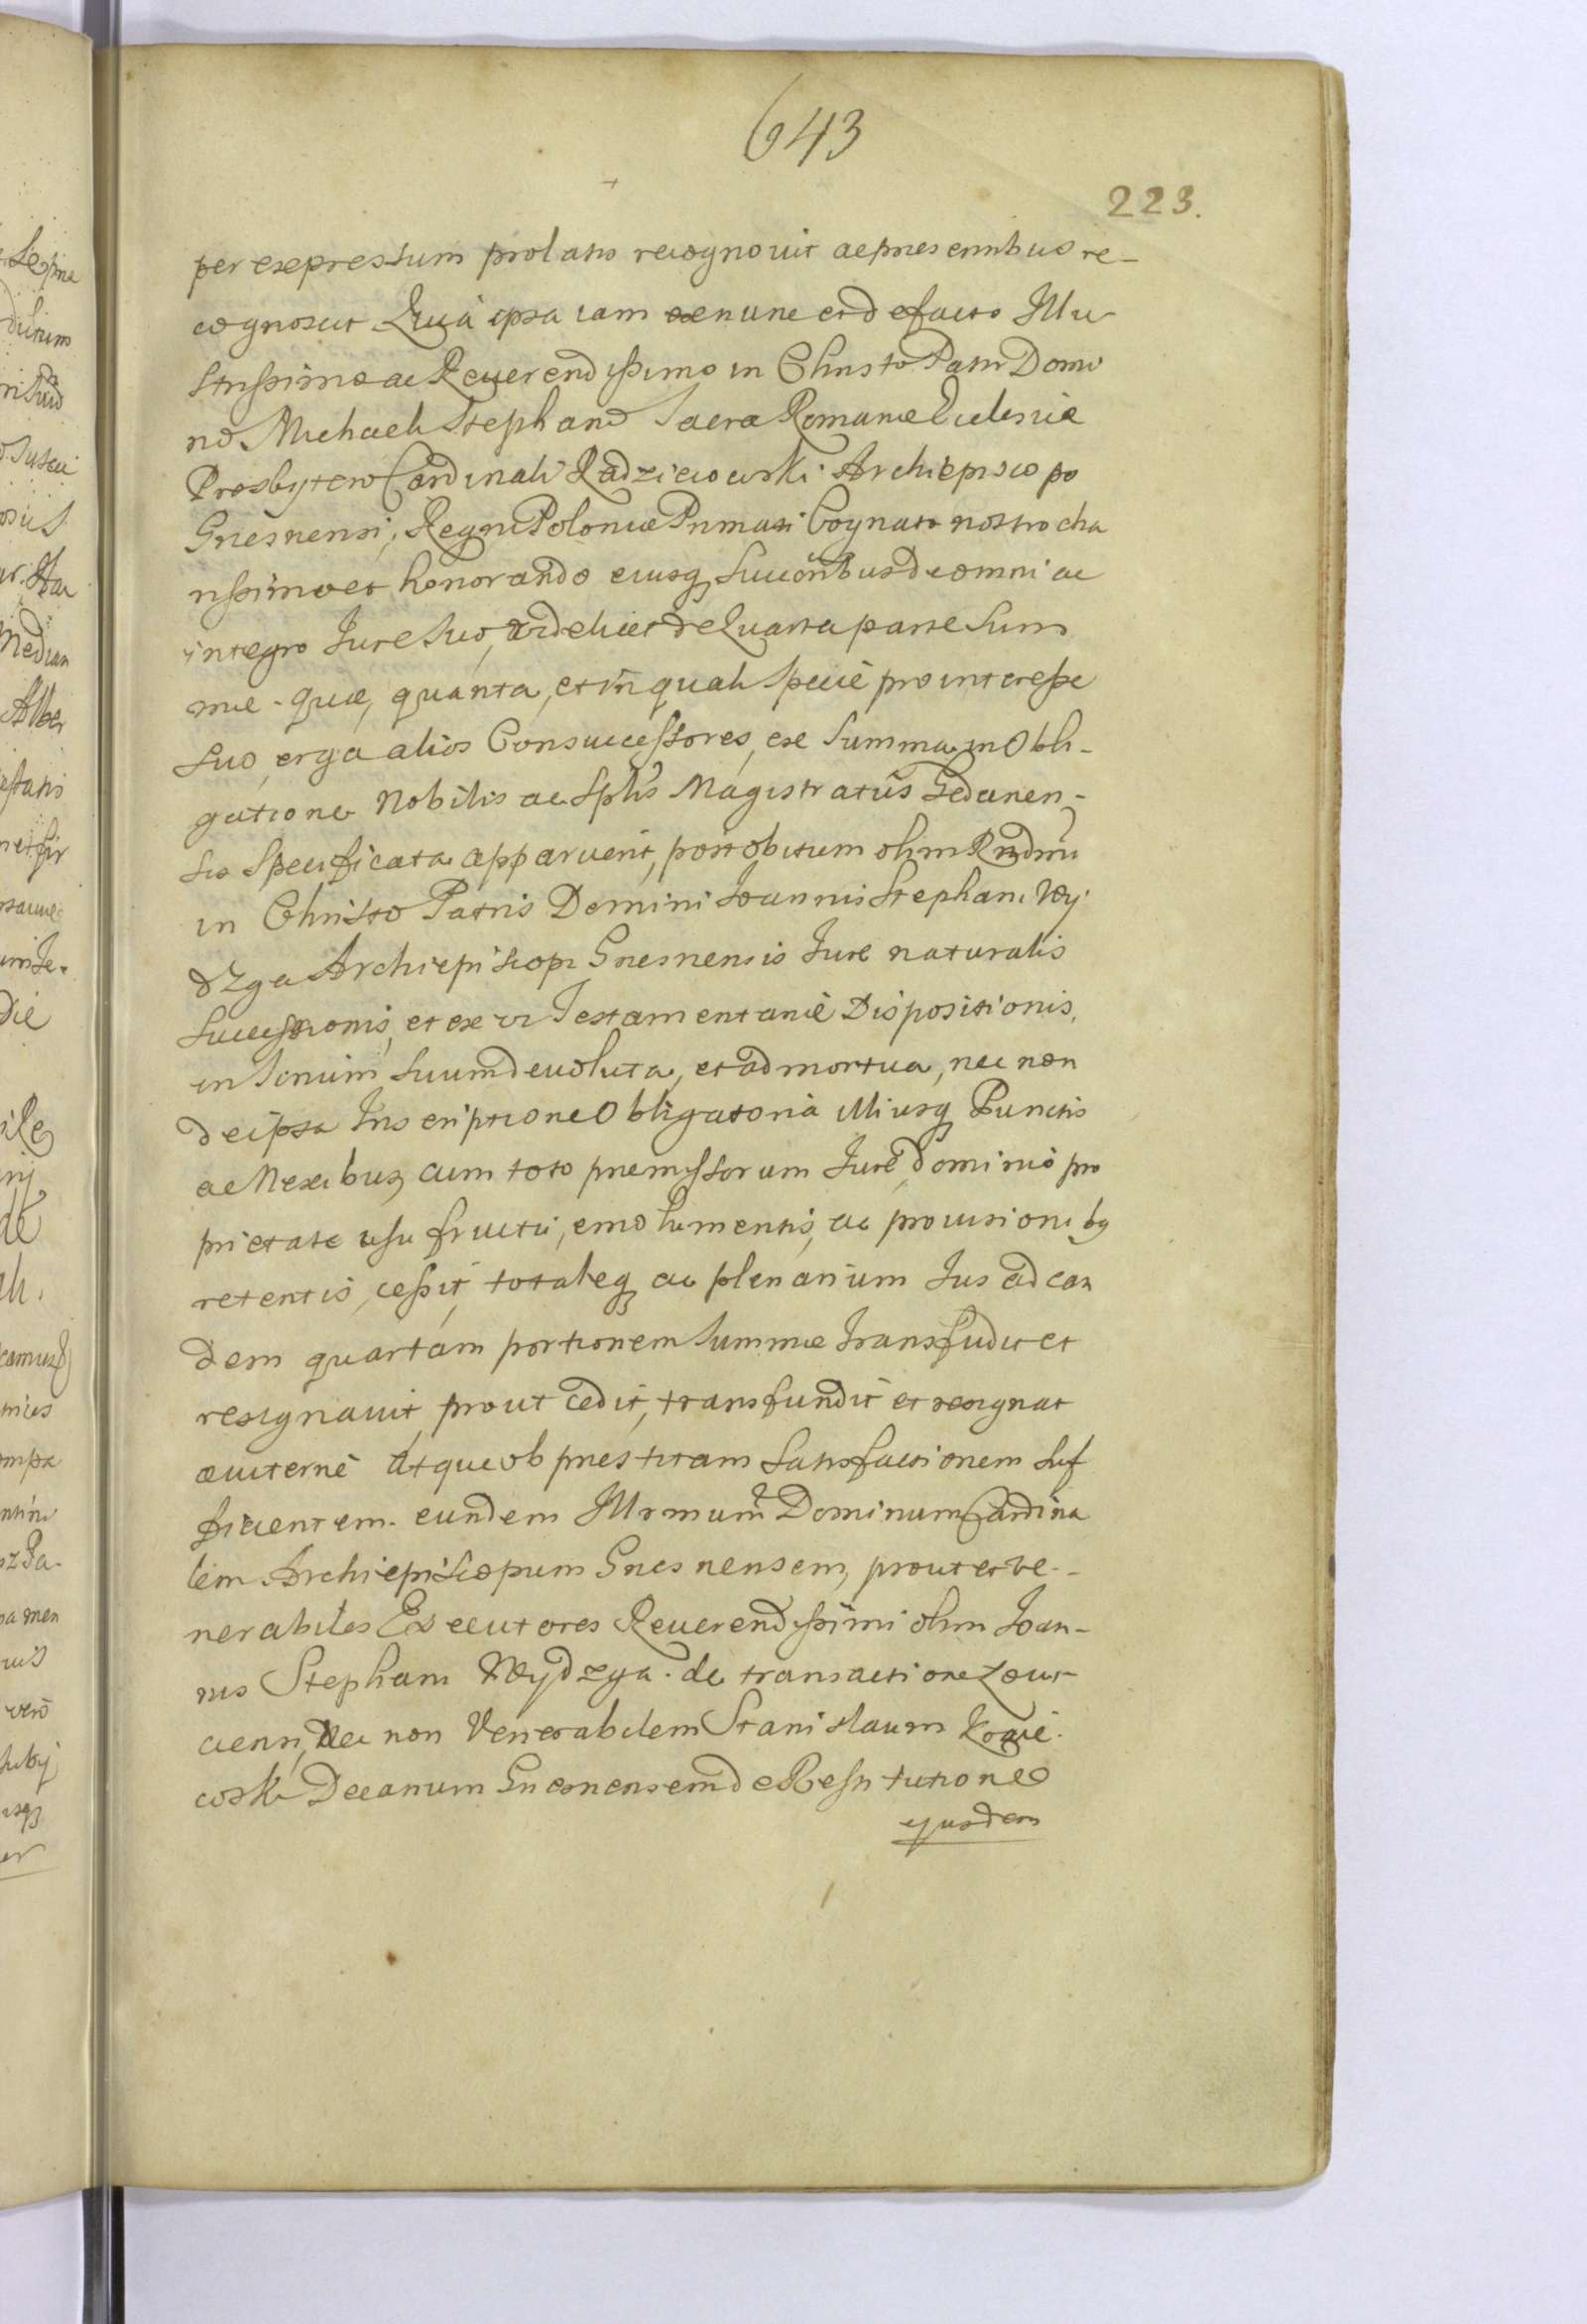 643
223.
per expressum prolatis recognovit ac præsentibus re-
cognoscit Quia ipsa iam ex nunc et de facto Illu-
strissimo ac Reverendissimo in Christo Patri Domi
no Michaeli Stephano Sacræ Romanæ Ecclesiæ
Presbytero Cardinali Radzieiowski Archiepiscopo
Gnesnensi, Regni Poloniæ Primati Cognato nostro cha
rissimo et honorando eiusq Succõribus de omni ac
integro Jure Suo, videlicet de Quarta parte Sum
mæ quæ, quanta, et in quali Specie pro interesse
Suo, erga alios Consuccessores, ex Summa in Obli-
gatione Nobilis ac Splis Magistratûs Gedanen-
sis Specificata apparuerit, post obitum olim Rndmi
in Christo Patris Domini Joannis Stephani Wy
dzga Archiepiscopi Gnesnensis Jure naturalis
Successionis, et ex vi Testamentariæ Dispositionis,
in Sinum Suum devoluta, et admortua, nec non
de ipsa Inscriptione Obligatoria illiusq Punctis
ac Nexibus, cum toto præmissorum Jure, dominio pro
prietate usu fructu, emolumentis, ac provisionibq
retentis, cessit, totaleq ac plenarium Jus ad ean
dem quartam portionem Summæ transfudit et
resignavit, prout cedit, transfundit et resignat
æviternè Atque ob præstitam Satisfactionem Suf
ficientem eundem Illrmum Dominum Cardina
lem Archiepiscopum Gnesnensem, prout et ve-
nerabiles Executores Reverendissimi olim Joan-
nis Stephani Wydzga de transactione Lowi
ciensi, Nec non Venerabilem Stanislaum
Decanum Gnesnensem de Restitutione
ejusdem